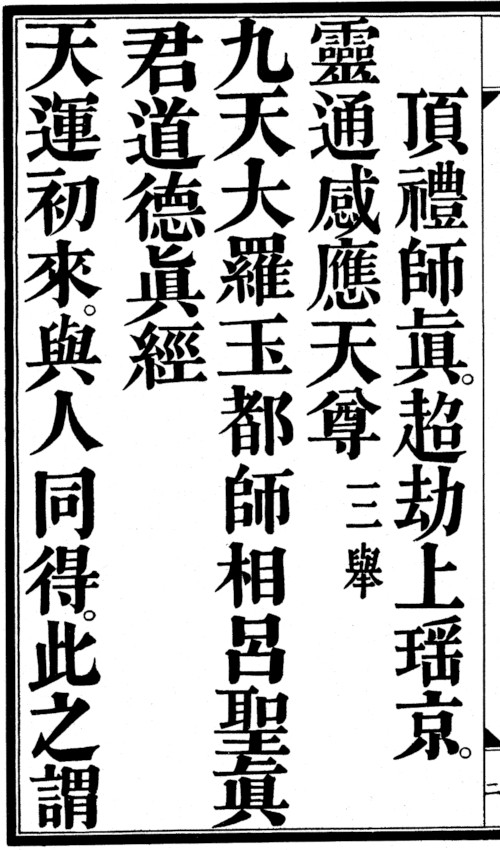 頂禮師眞。超劫上瑶京。
靈通感應天尊 三舉
九天大羅玉都師相呂聖眞
君道德眞經
天運初來。與人同得。此之謂
二